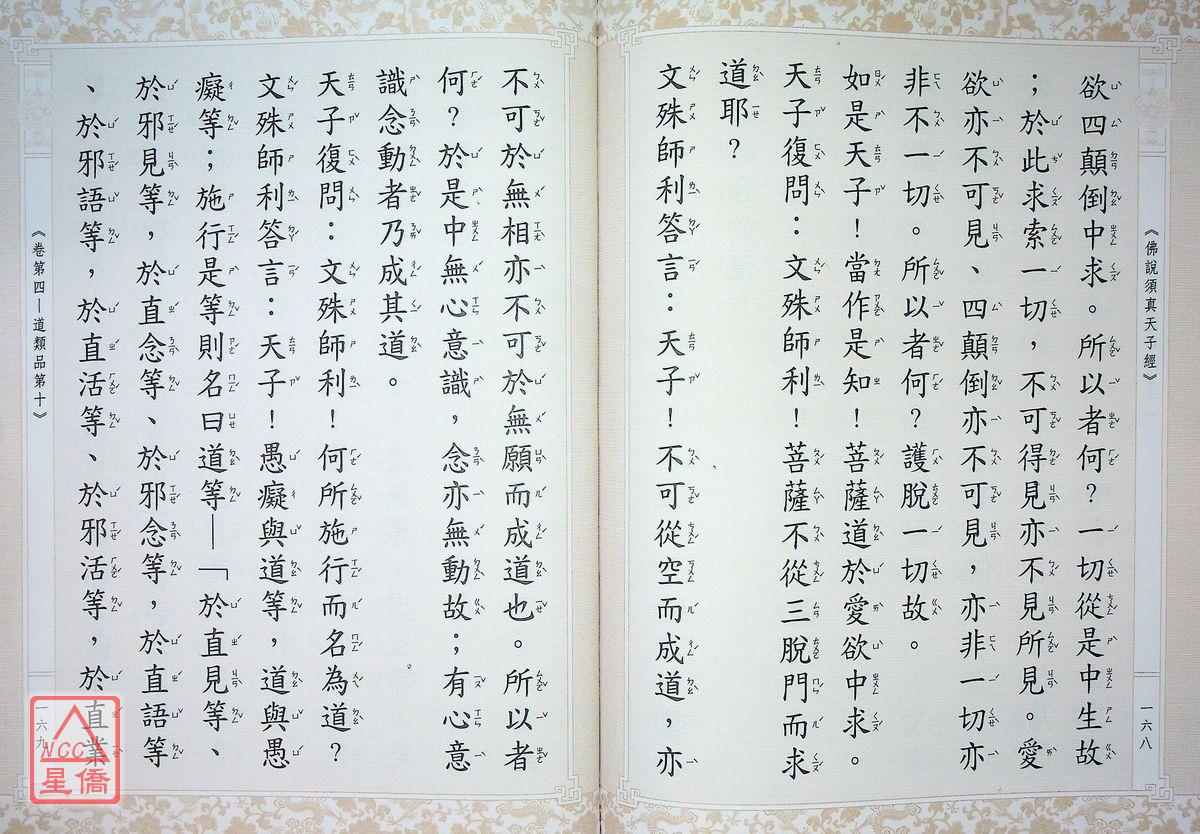 《佛說須真天子經》
一六八
欲四顛倒中求。所以者何？一切從是中生故
；於此求索一切，不可得見亦不見所見。愛
欲亦不可見、四顛倒亦不可見，亦非一切亦
非不一切。所以者何？護脫一切故。
如是天子！當作是知！菩薩道於愛欲中求。
天子復問：文殊師利！菩薩不從三脫門而求
道耶？
文殊師利答言：天子！不可從空而成道，亦
不可於無相亦不可於無願而成道也。所以者
何？於是中無心意識，念亦無動故；有心意
識念動者乃成其道。
天子復問：文殊師利！何所施行而名為道？
文殊師利答言：天子！愚癡與道等，道與愚
癡等；施行是等則名曰道等—「於直見等、
於邪見等，於直念等、於邪念等，於直語等
、於邪語等，於直活等、於邪活等，於直業
《卷第四—道類品第十》
一六九
NCC
星僑